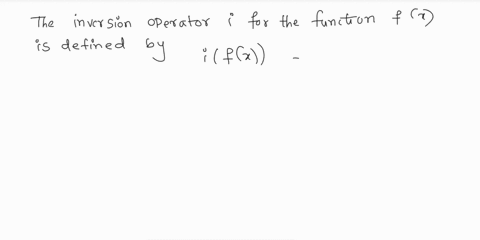 The inversion operator i for the function f(x)
is defined by i(f(x)) -